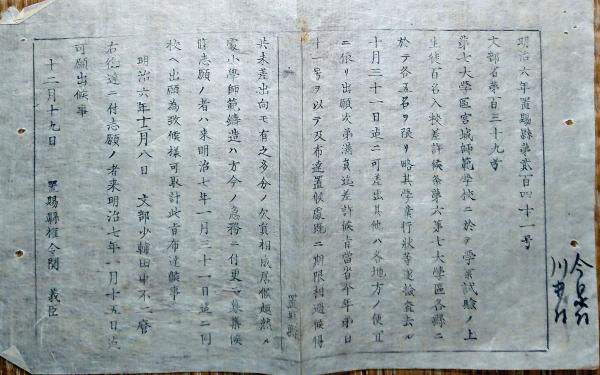 明治六年置賜縣第貳百四十一号
文部省第百三十九号
第七大學區宮城師範学校ニ於テ学業試驗ノ上
生徒百名入校差許候条第六第七大学區各縣ニ
於テ各五名ヲ限リ略其学業行状等運檢査去ル
十月三十一日迠ニ可差出其他ハ各地方ノ便宜
ニ依リ出願次第満員迠差許候旨當省本年第百
十一号ヲ以テ及布達置候處既ニ期限相過候得
共未差出向モ有之多分ノ欠員相成居候趣然ル
處小學師範鑄造ハ方今ノ急務ニ付更ニ募集候
條志願ノ者ハ来明治七年一月三十一日迠ニ同
校ヘ出願為致候様可取計此旨布達候事
明治六年十二月八日 文部少輔田中不二麿
右御達ニ付志願ノ者来明治七年一月十五日迠
可願出候事
十二月十九日 置賜縣権令関 義臣
置賜縣
川井村